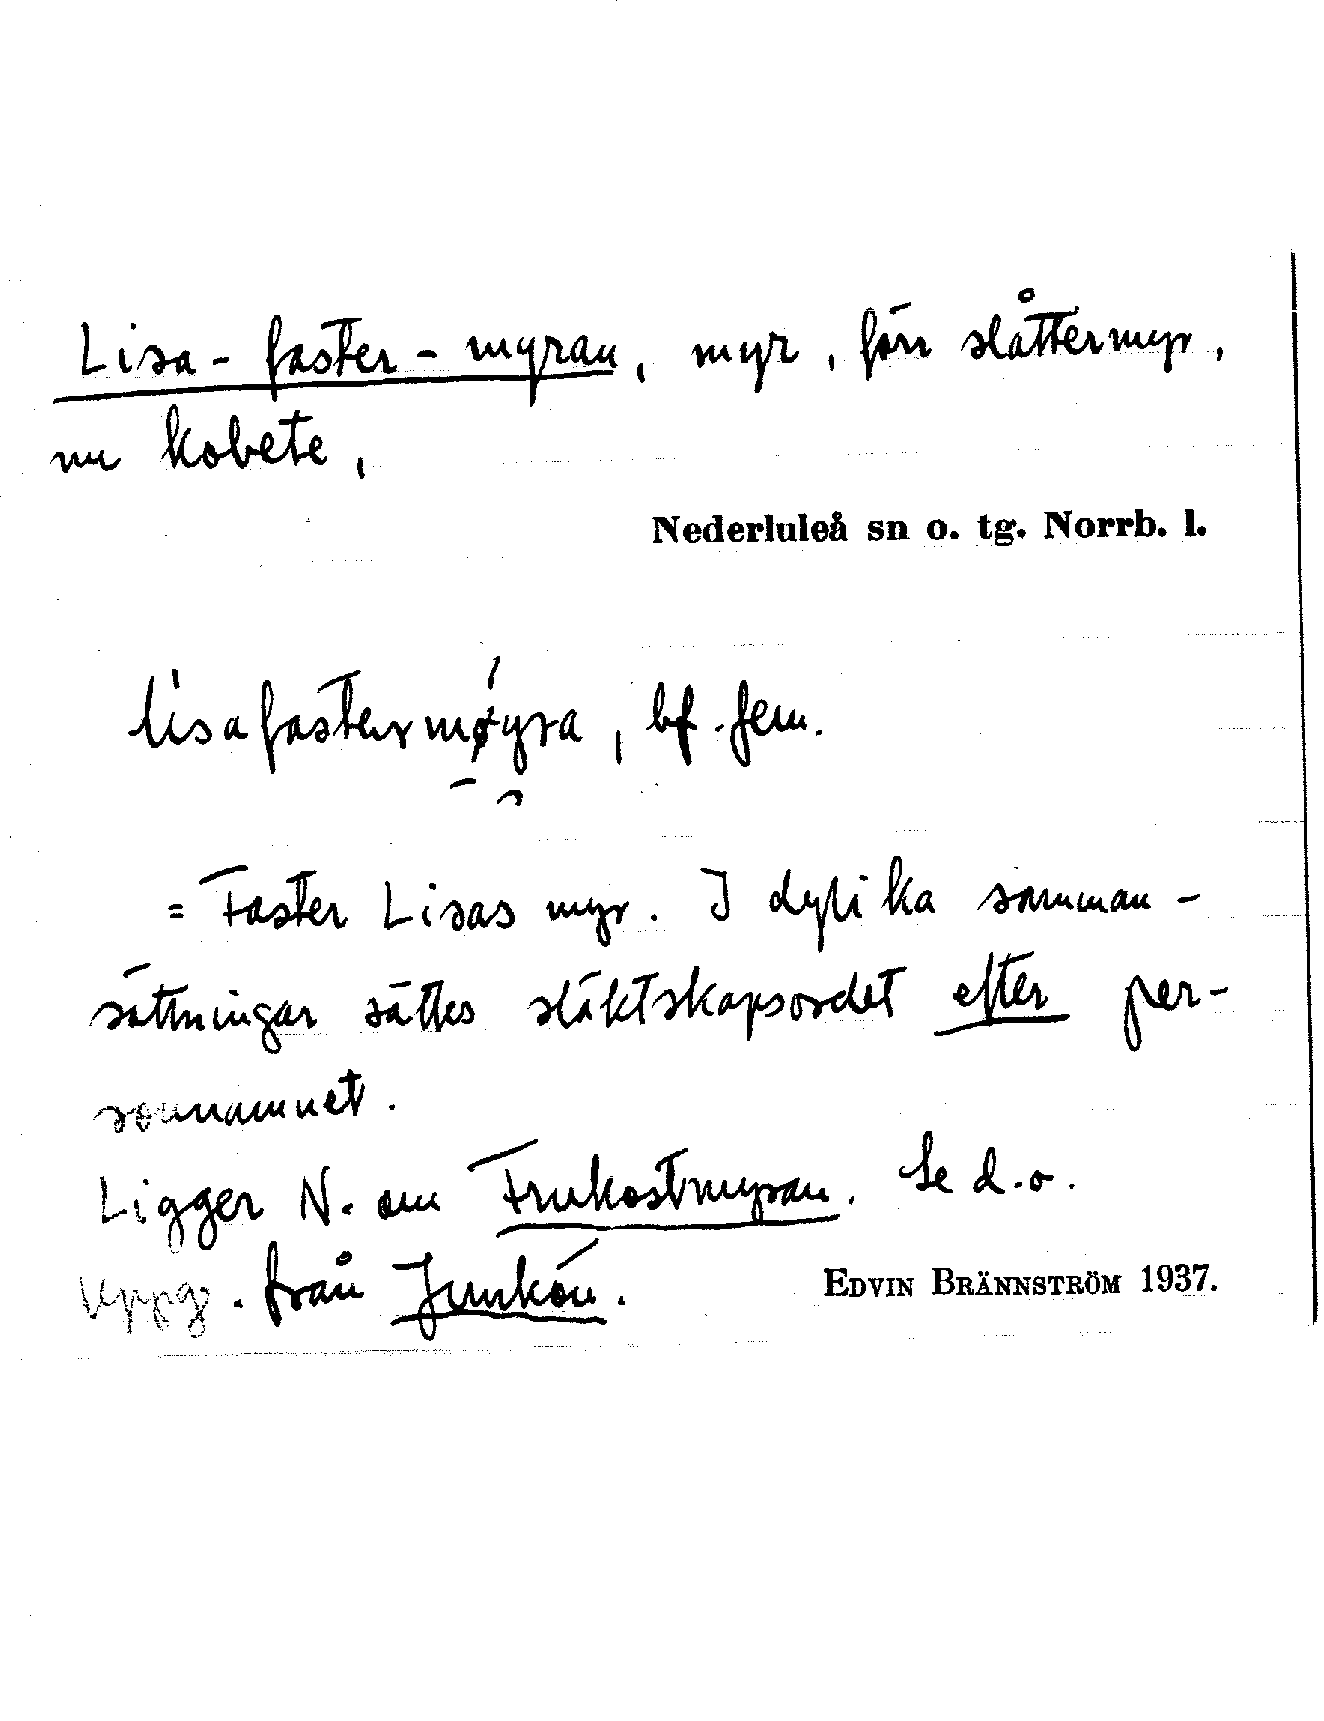 Lisa-faster-myran, myr, förr slåttermyr,
nu kobete,
Nederluleå sn o. tg. Norrb. l.
bf. fem.
= Faster Lisas myr. I dylika samman-
sättningar sättes släktskapsordet efter per-
sonnamnet.
Ligger N. om Frukostmyran. Se d.o.
Uppg. från Junkön.
EDVIN BRÄNNSTRÖM 1937.